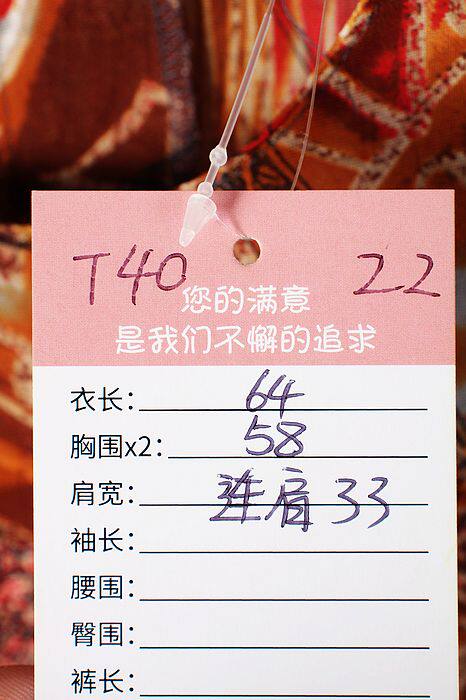 T40 22
您的满意
是我们不懈的追求
衣长: 64
胸围x2: 58
肩宽: 连肩 33
袖长:
腰围:
臀围:
裤长: